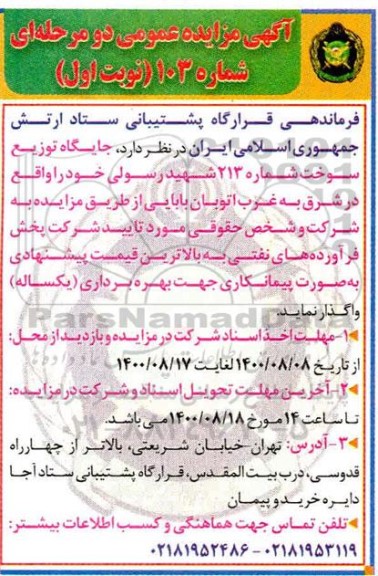 آگهی مزایده عمومی دو مرحله‌ای
شماره ۱۰۳ (نوبت اول)
فرماندهی قرارگاه پشتیبانی ستاد ارتش
جمهوری اسلامی ایران در نظر دارد، جایگاه توزیع
سوخت شماره ۲۱۳ شهید رسولی خود را واقع
در شرق به غرب اتوبان بابایی از طریق مزایده به
شرکت و شخص حقوقی مورد تایید شرکت پخش
فرآورده‌های نفتی به بالاترین قیمت پیشنهادی
به‌صورت پیمانکاری جهت بهره برداری (یکساله)
واگذار نماید.
۱- مهلت اخذ اسناد شرکت در مزایده و بازدید از محل:
از تاریخ ۱۴۰۰/۰۸/۰۸ لغایت ۱۴۰۰/۰۸/۱۷
۲- آخرین مهلت تحویل اسناد و شرکت در مزایده:
تا ساعت ۱۴ مورخ ۱۴۰۰/۰۸/۱۸ می باشد.
۳- آدرس: تهران-خیابان شریعتی، بالاتر از چهارراه
قدوسی، درب بیت المقدس، قرارگاه پشتیبانی ستاد آجا
دایره خرید و پیمان
تلفن تماس جهت هماهنگی و کسب اطلاعات بیشتر:
۰۲۱۸۱۹۵۳۱۱۹ - ۰۲۱۸۱۹۵۲۴۸۶